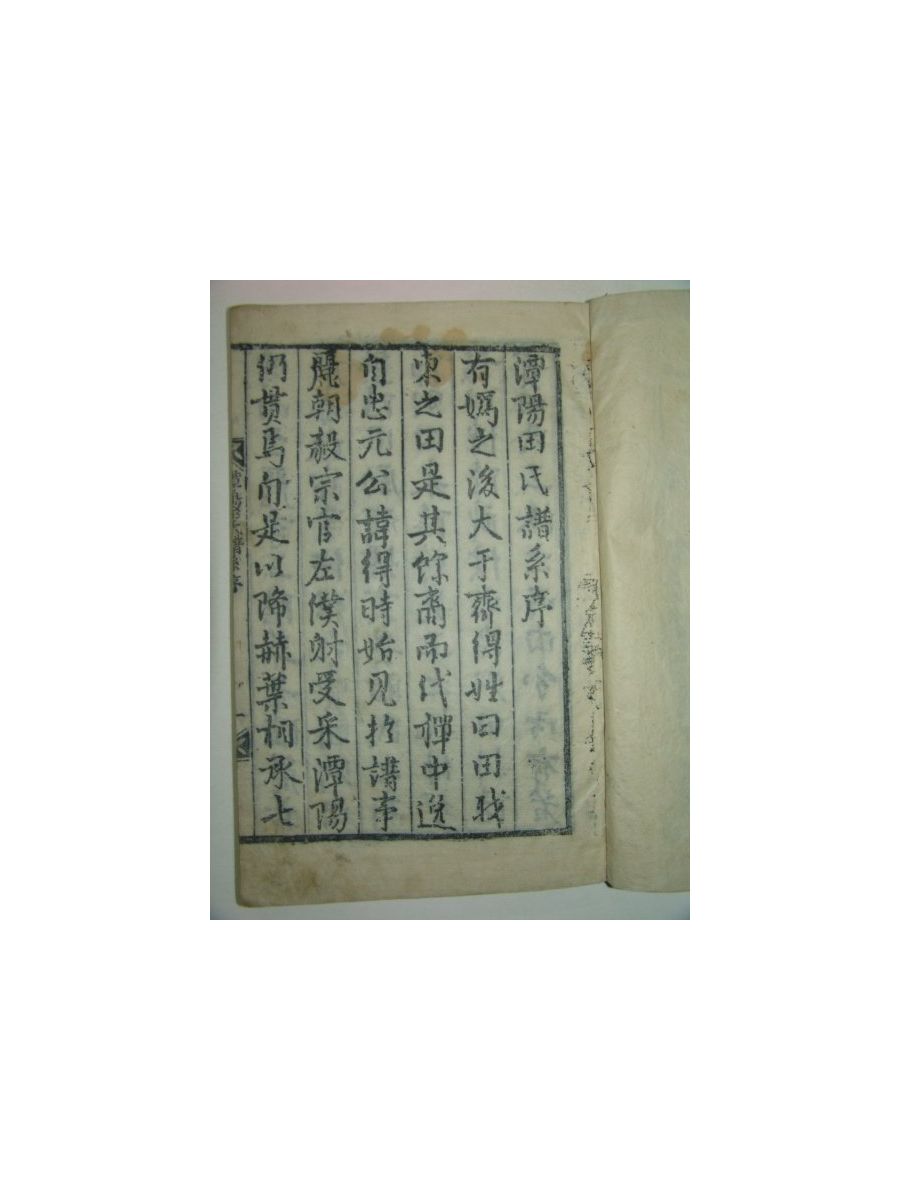 潭陽田氏譜系序
有嬀之後大于齊得姓曰田我
東之田是其餘裔而代禪中逸
自忠元公諱得時始見於譜事
麗朝毅宗官左僕射受采潭陽
仍貫焉自是以降赫葉相承七